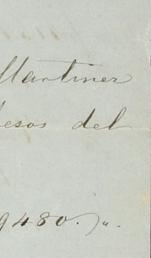 Martinez
pesos del
9480.